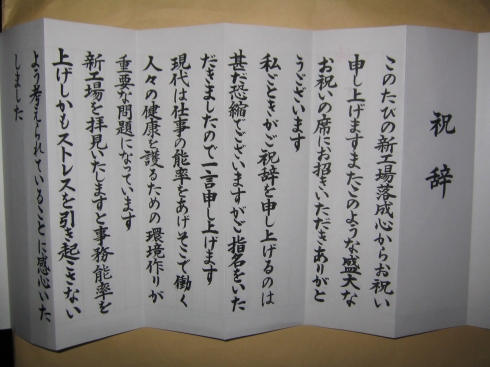 祝辞
このたびの新工場落成心からお祝い
申し上げますまたこのような盛大な
お祝いの席にお招きいただきありがと
うございます
私ごときがご祝辞を申し上げるのは
甚だ恐縮でございますがご指名をいた
だきましたので一言申し上げます
現代は仕事の能率をあげそこで働く
人々の健康を護るための環境作りが
重要な問題になっています
新工場を拝見いたしますと事務能率を
上げしかもストレスを引き起こさない
よう考えられていることに感心いた
しました